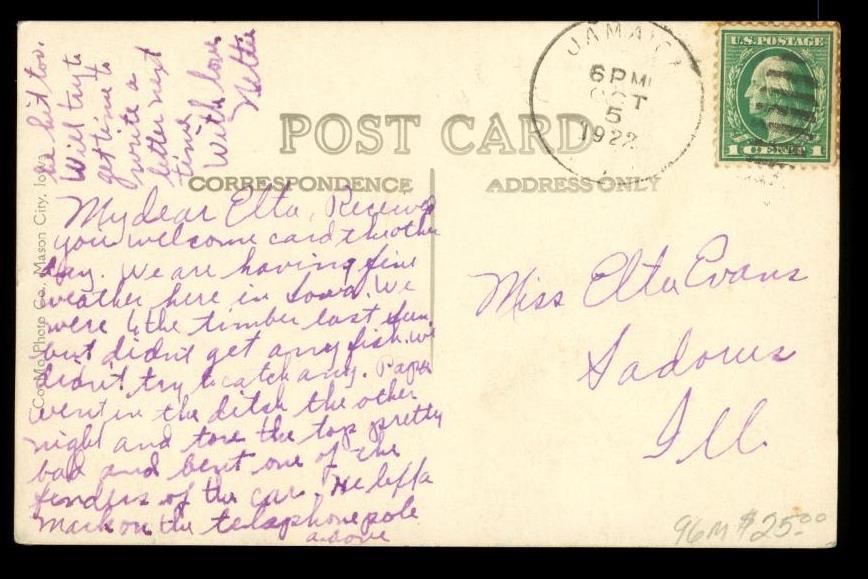 POST CARD
CORRESPONDENCE
ADDRESS ONLY
JAMAICA
6 PM
OCT
5
1922
U.S. POSTAGE
1 CENT 1
My dear Elta, Received
you welcome card the other
day. We are having fine
weather here in Iowa. We
were to the timber last Sun
but didnt get any fish. We
didn't try to catch any. Papa
went in the ditch the other
night and tore the top pretty
bad and bent one of the
fenders of the car. He left a
mark on the telephone pole
he hit too.
Will try to
get time to
write a
letter next
time
With love
Nettie
Miss Elta Evans
Sadorus
Ill.
CoMo Photo Co. Mason City, Iowa
96M $25.00